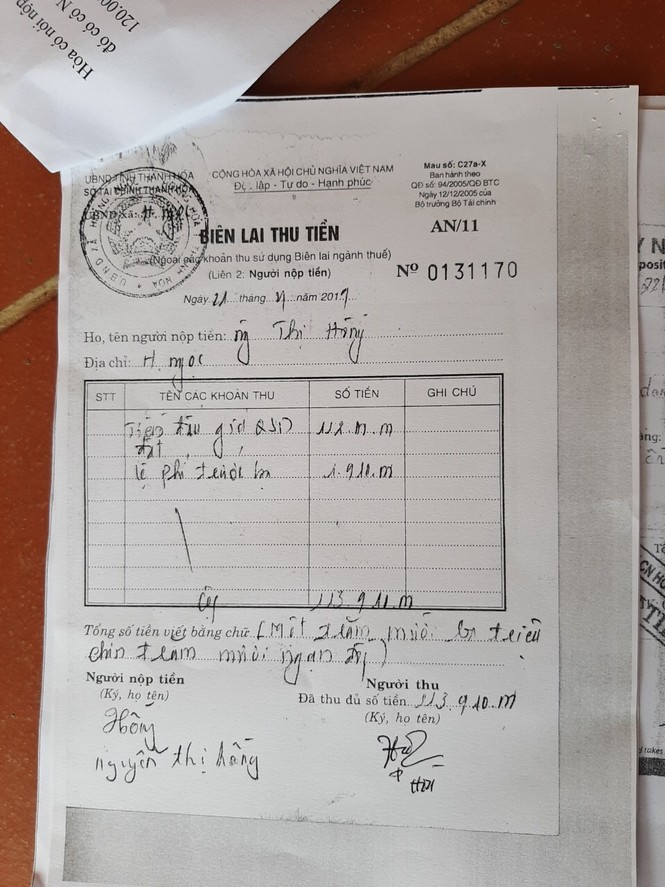 Hòa có nơi nộp
đó có N
120.00
UBND TỈNH THANH HÓA
SỞ TÀI CHÍNH THANH HÓA
UBND Xã: H.
CỘNG HÒA XÃ HỘI CHỦ NGHĨA VIỆT NAM
Độc lập - Tự do - Hạnh phúc
Mẫu số: C27a-X
Ban hành theo
QĐ số: 94/2005/QĐ BTC
Ngày 12/12/2005 của
Bộ trưởng Bộ Tài chính
AN/11
BIÊN LAI THU TIỀN
(Ngoài các khoản thu sử dụng Biên lai ngành thuế)
(Liên 2: Người nộp tiền)
Nº 0131170
Ngày 21 tháng năm 201
Họ, tên người nộp tiền: Thị Hồng
Địa chỉ: H. ngọc
STT TÊN CÁC KHOẢN THU SỐ TIỀN GHI CHÚ
Tiền đấu giá QSD 112.m.m
đất
lệ phí trước bạ 1.910.m
Cộng 113.910.m
Tổng số tiền viết bằng chữ (Một trăm mười ba triệu
chín trăm mười ngàn đồng)
Người nộp tiền
(Ký, họ tên)
Hồng
nguyễn thị hồng
Người thu
Đã thu đủ số tiền 113.910.m
(Ký, họ tên)